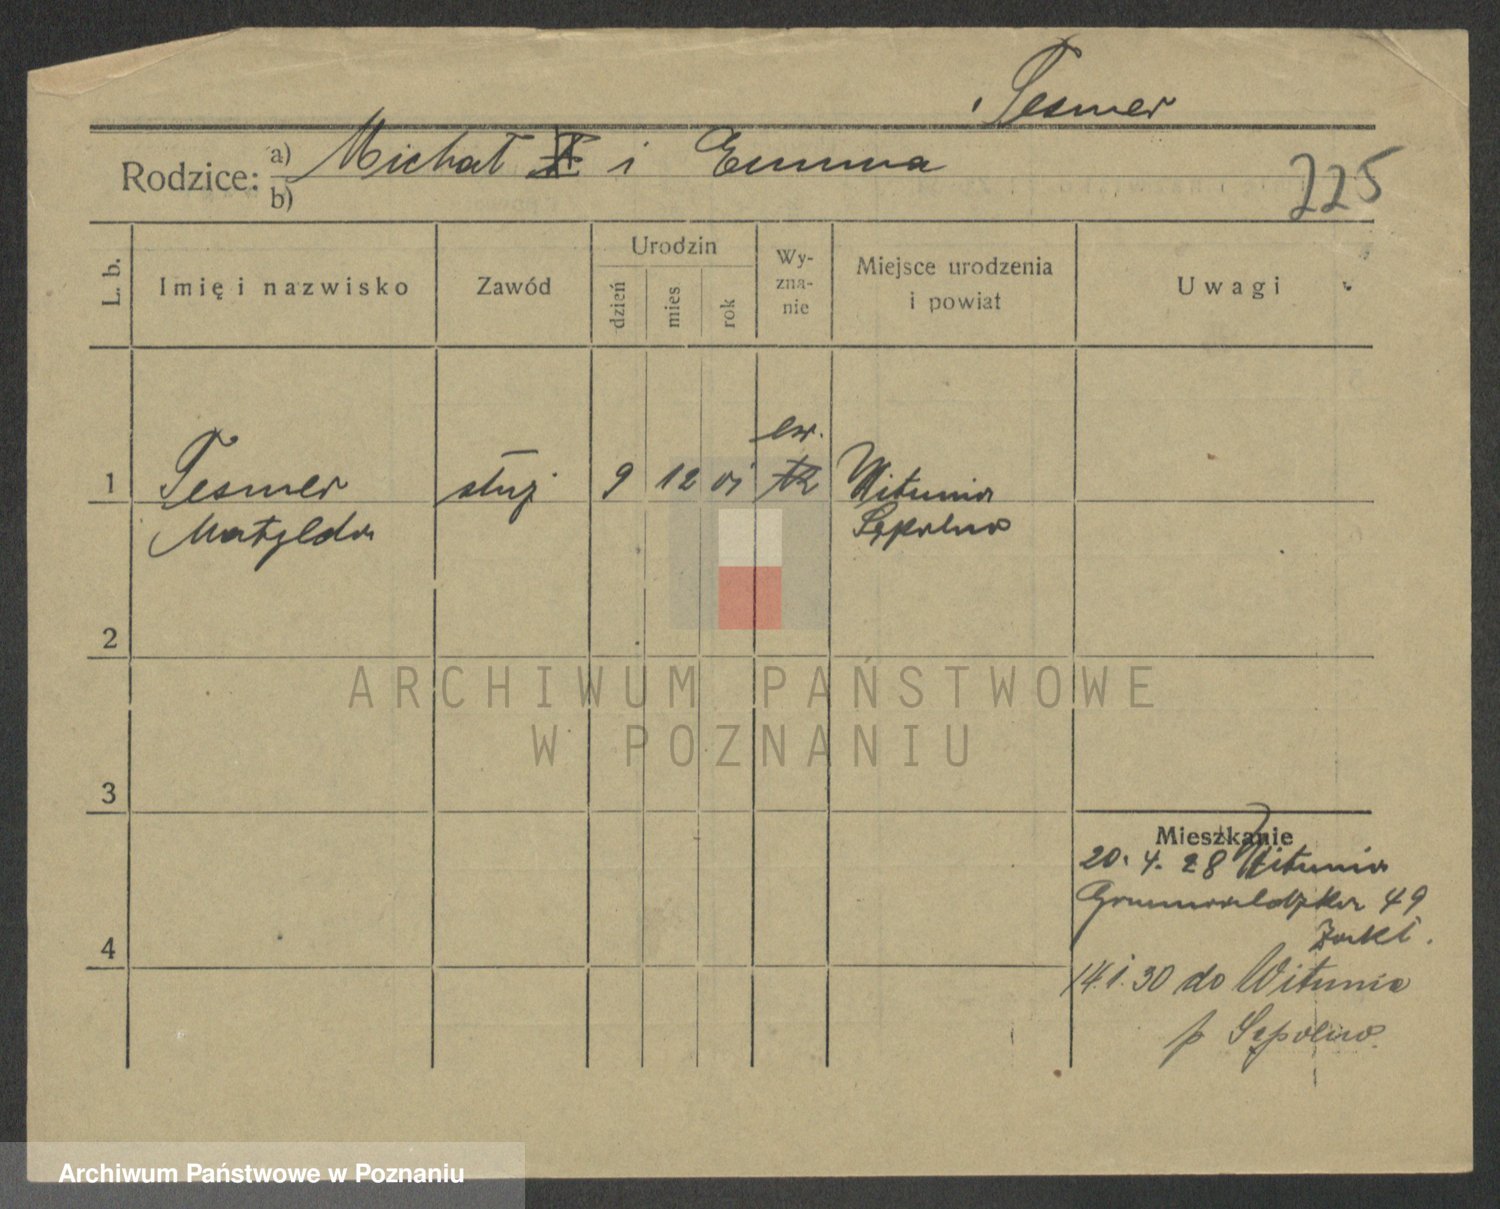 Tesmer
Rodzice: a) Michał i Emma
b)
225
L. b.
Imię i nazwisko
Zawód
Urodzin
dzień
mies
rok
Wy-
zna-
nie
Miejsce urodzenia
i powiat
Uwagi
ew.
1 Tesmer służ 9 12 01 Witunia
Matylda Sępolno
2
3
4
ARCHIWUM PAŃSTWOWE
W POZNANIU
Mieszkanie
20. 4. 28 Witunia
Grunwaldzka 49
14. 1. 30 do Witunia
p Sępolno
Archiwum Państwowe w Poznaniu